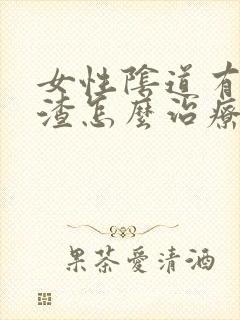 女性陰道有
渣怎麼治療
果茶愛清酒